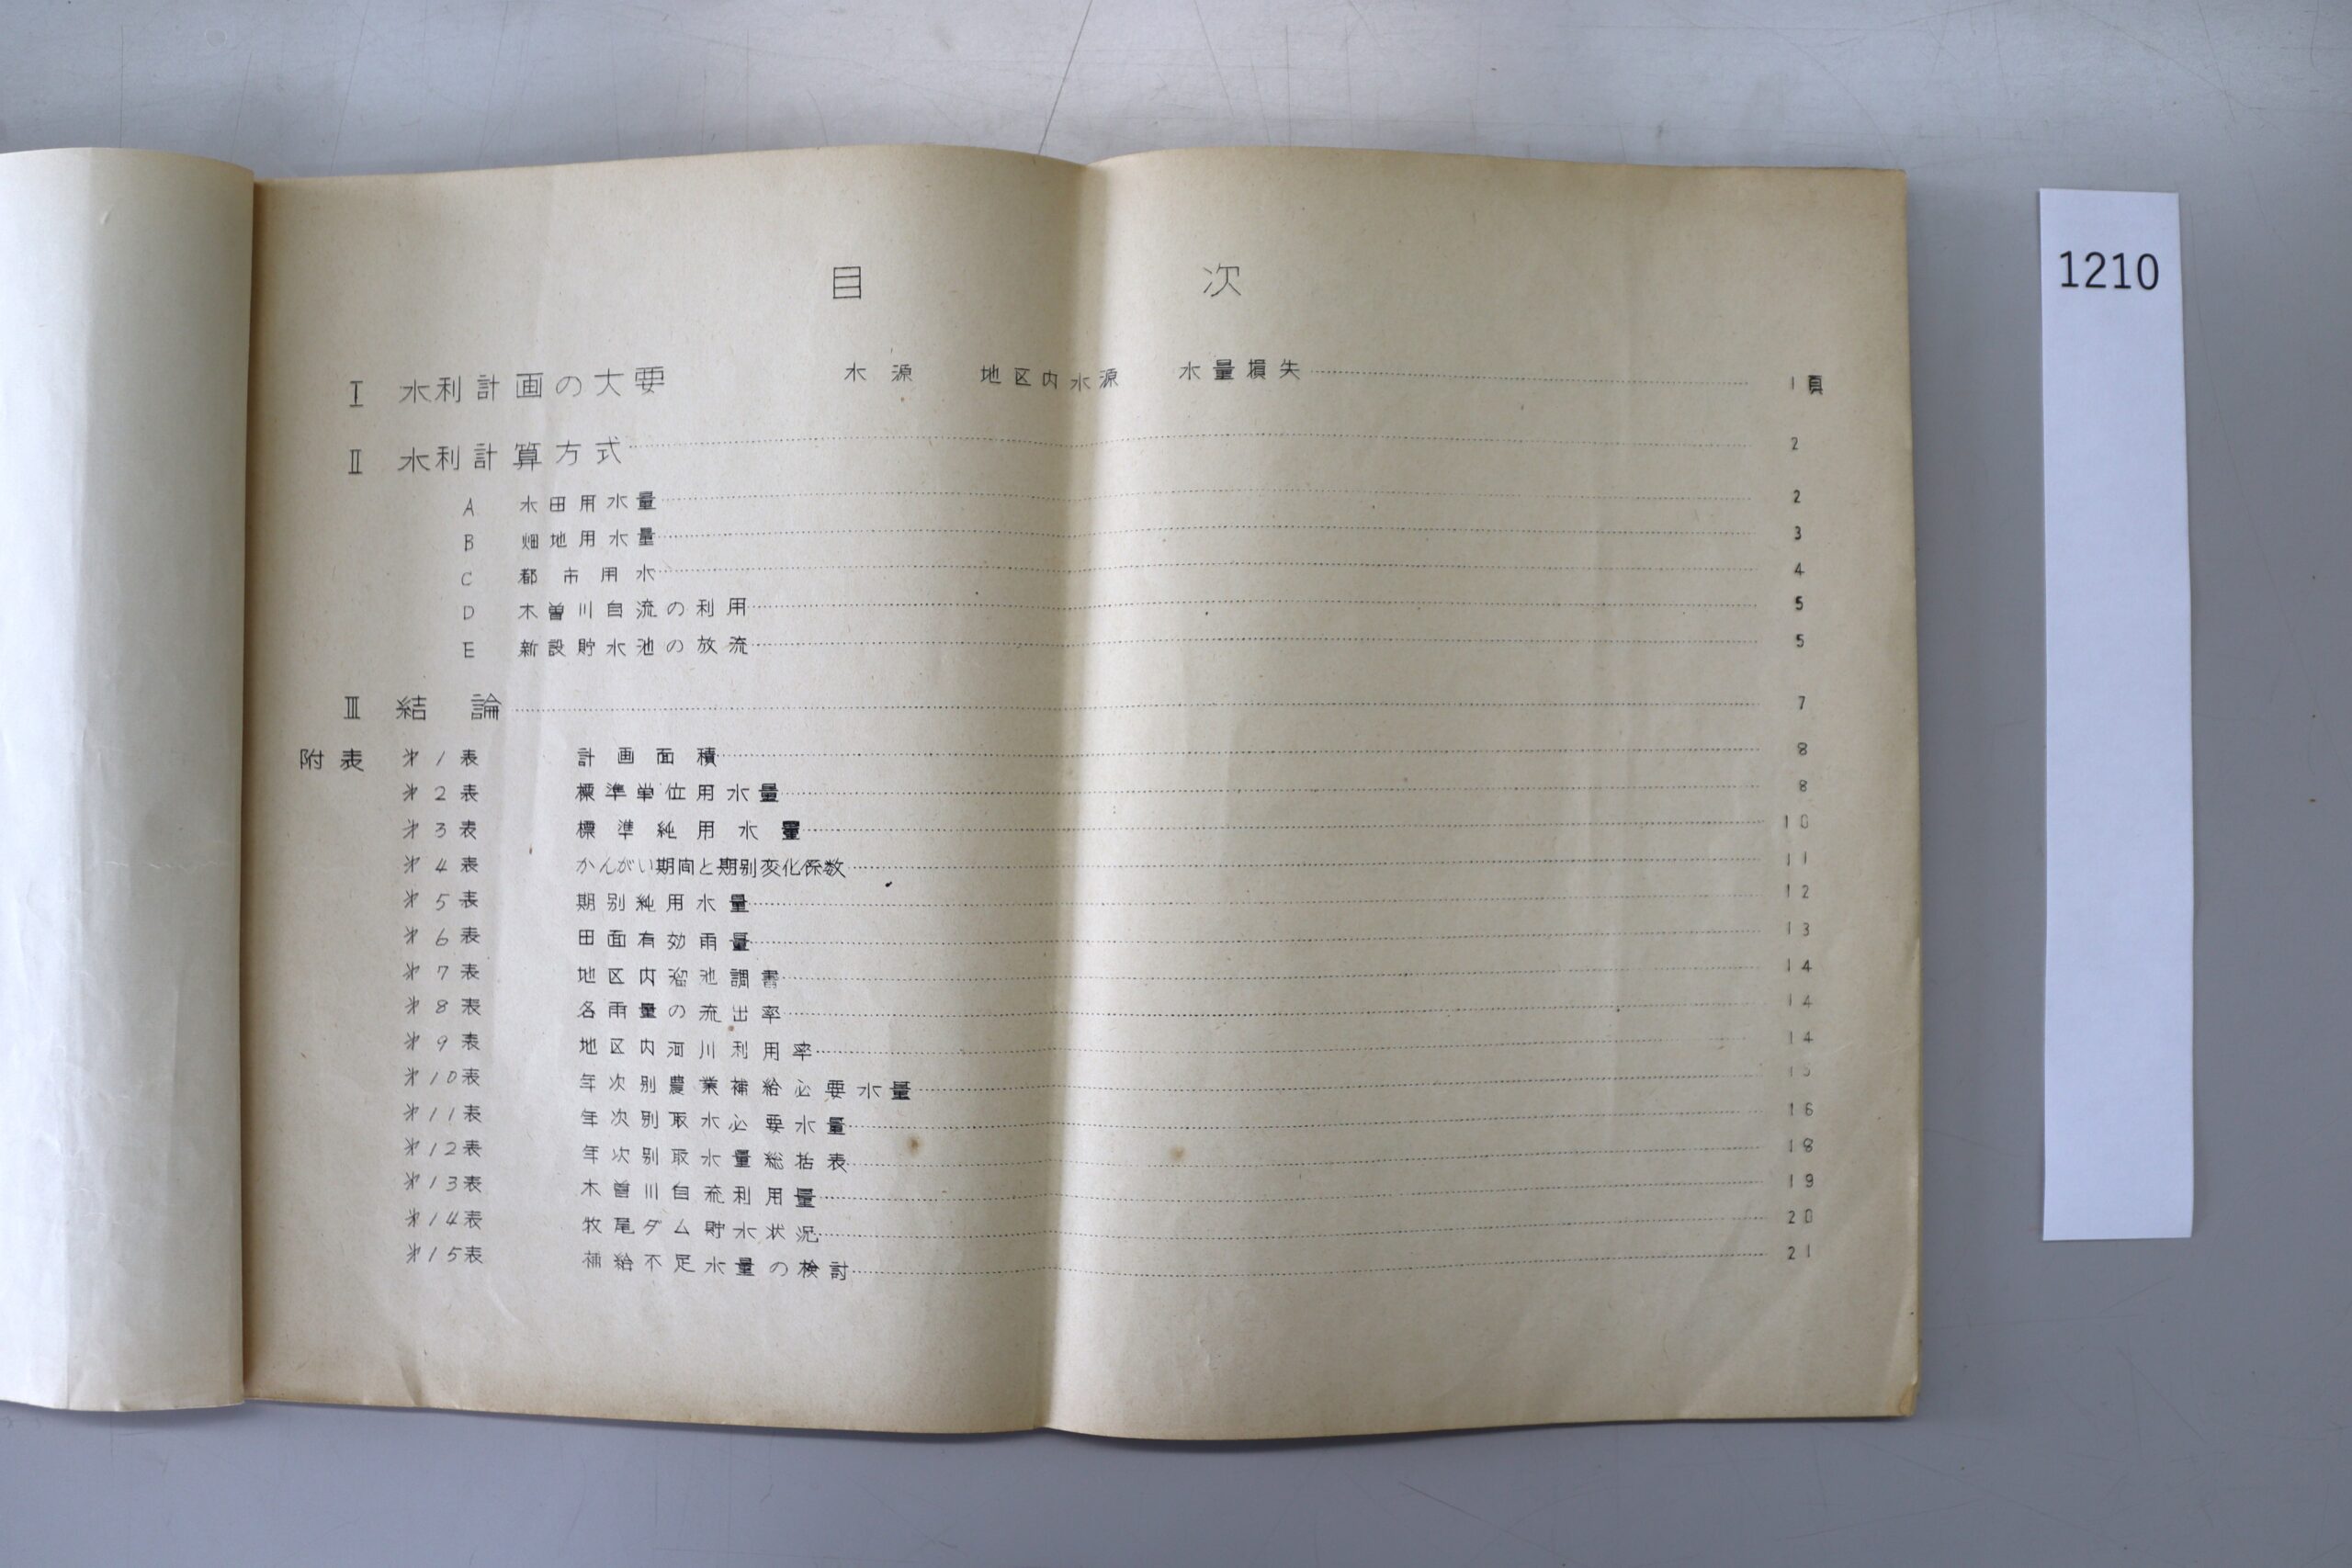 目次
Ⅰ 水利計画の大要 水源 地区内水源 水量損失 1頁
Ⅱ 水利計算方式 2
A 水田用水量 2
B 畑地用水量 3
C 都市用水 4
D 木曽川自流の利用 5
E 新設貯水池の放流 5
Ⅲ 結論 7
附表 第1表 計画面積 8
第2表 標準単位用水量 8
第3表 標準純用水量 10
第4表 かんがい期间と期别変化係数 11
第5表 期别純用水量 12
第6表 田面有効雨量 13
第7表 地区内溜池調書 14
第8表 各雨量の流出率 14
第9表 地区内河川利用率 14
第10表 年次別農業補給必要水量 15
第11表 年次別取水必要水量 16
第12表 年次別取水量総括表 18
第13表 木曽川自流利用量 19
第14表 牧尾ダム貯水状況 20
第15表 補給不足水量の検討 21
1210